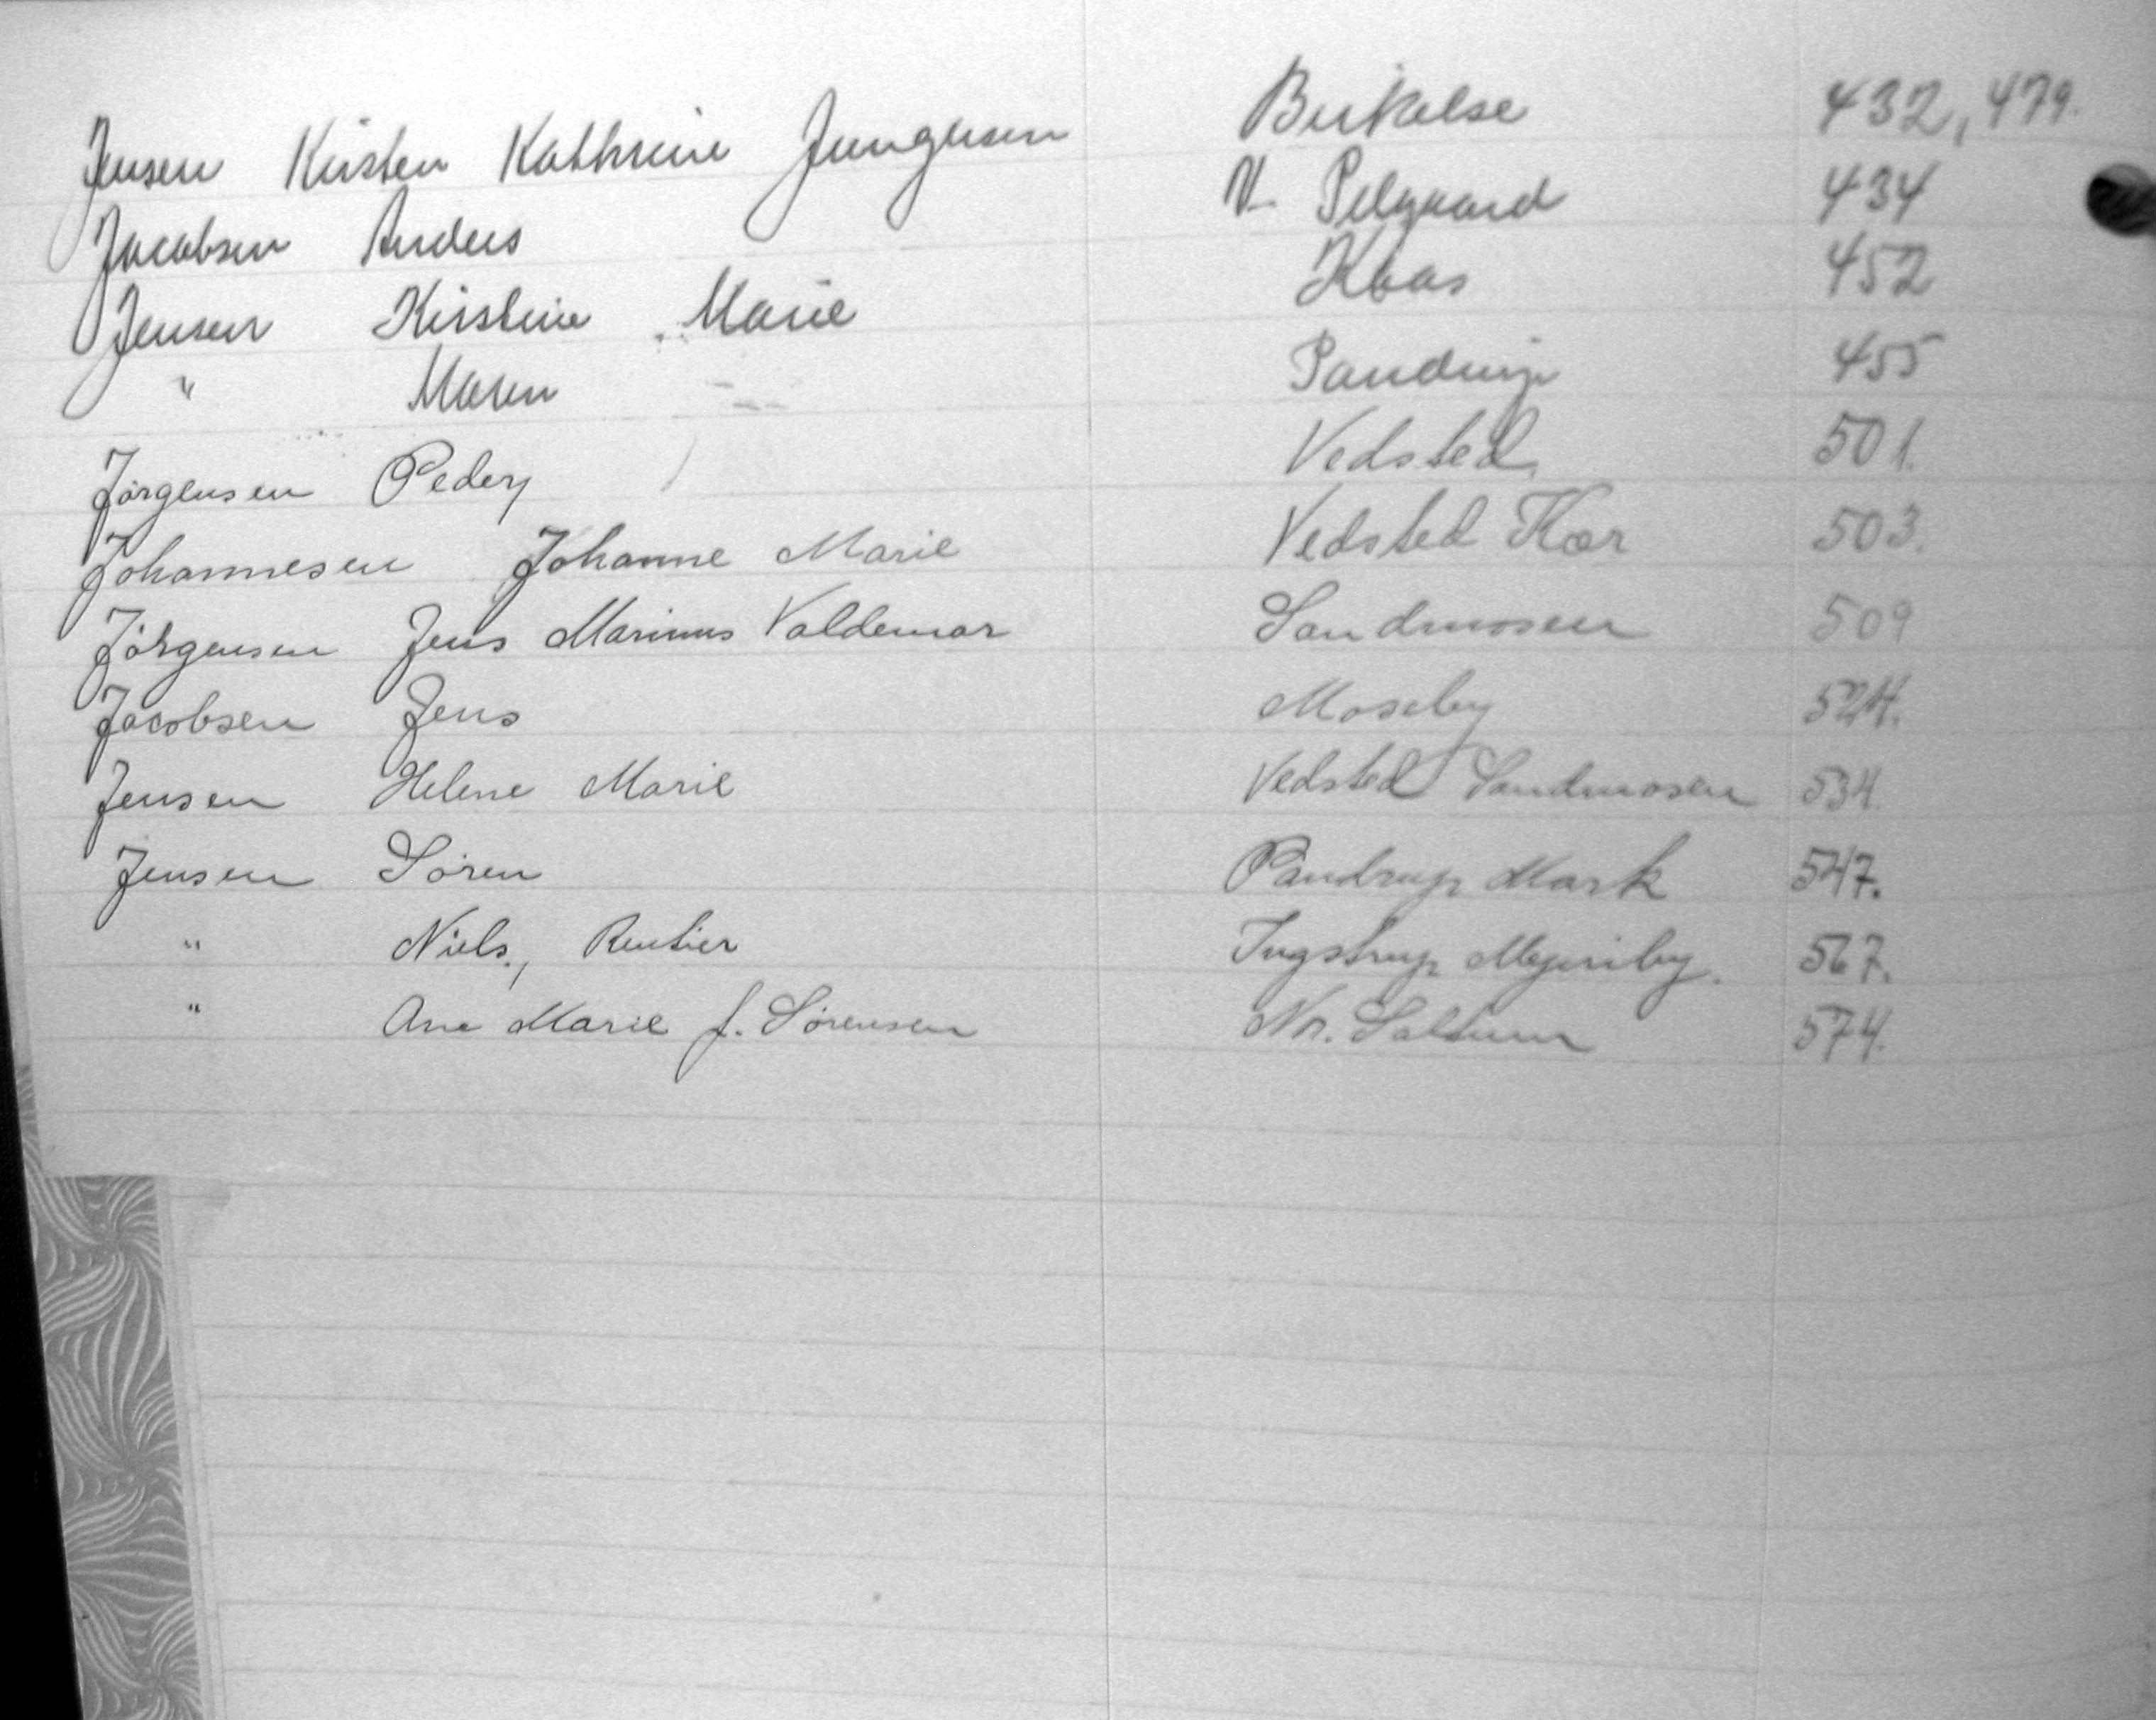 Jensen Kirsten Kathrine Jungersen Birkelse 432, 479.
Jacobsen Anders V. 434
Jensen Kirstine Marie Kaas 452
" Maren Pandrup 455
Jörgensen Peder Vedsted 501.
Johannesen Johanne Marie Vedsted Kær 503.
Jörgensen Jens Marinus Valdemar Sandmosen 509
Jacobsen Jens Moseby 524.
Jensen Helene Marie Vedsted Sandmosen 534.
Jensen Sören Pandrup Mark 547.
" Niels, Rentier Ingstrup Mejeriby. 567.
" Ane Marie f. Sørensen Nr. Saltum 574.